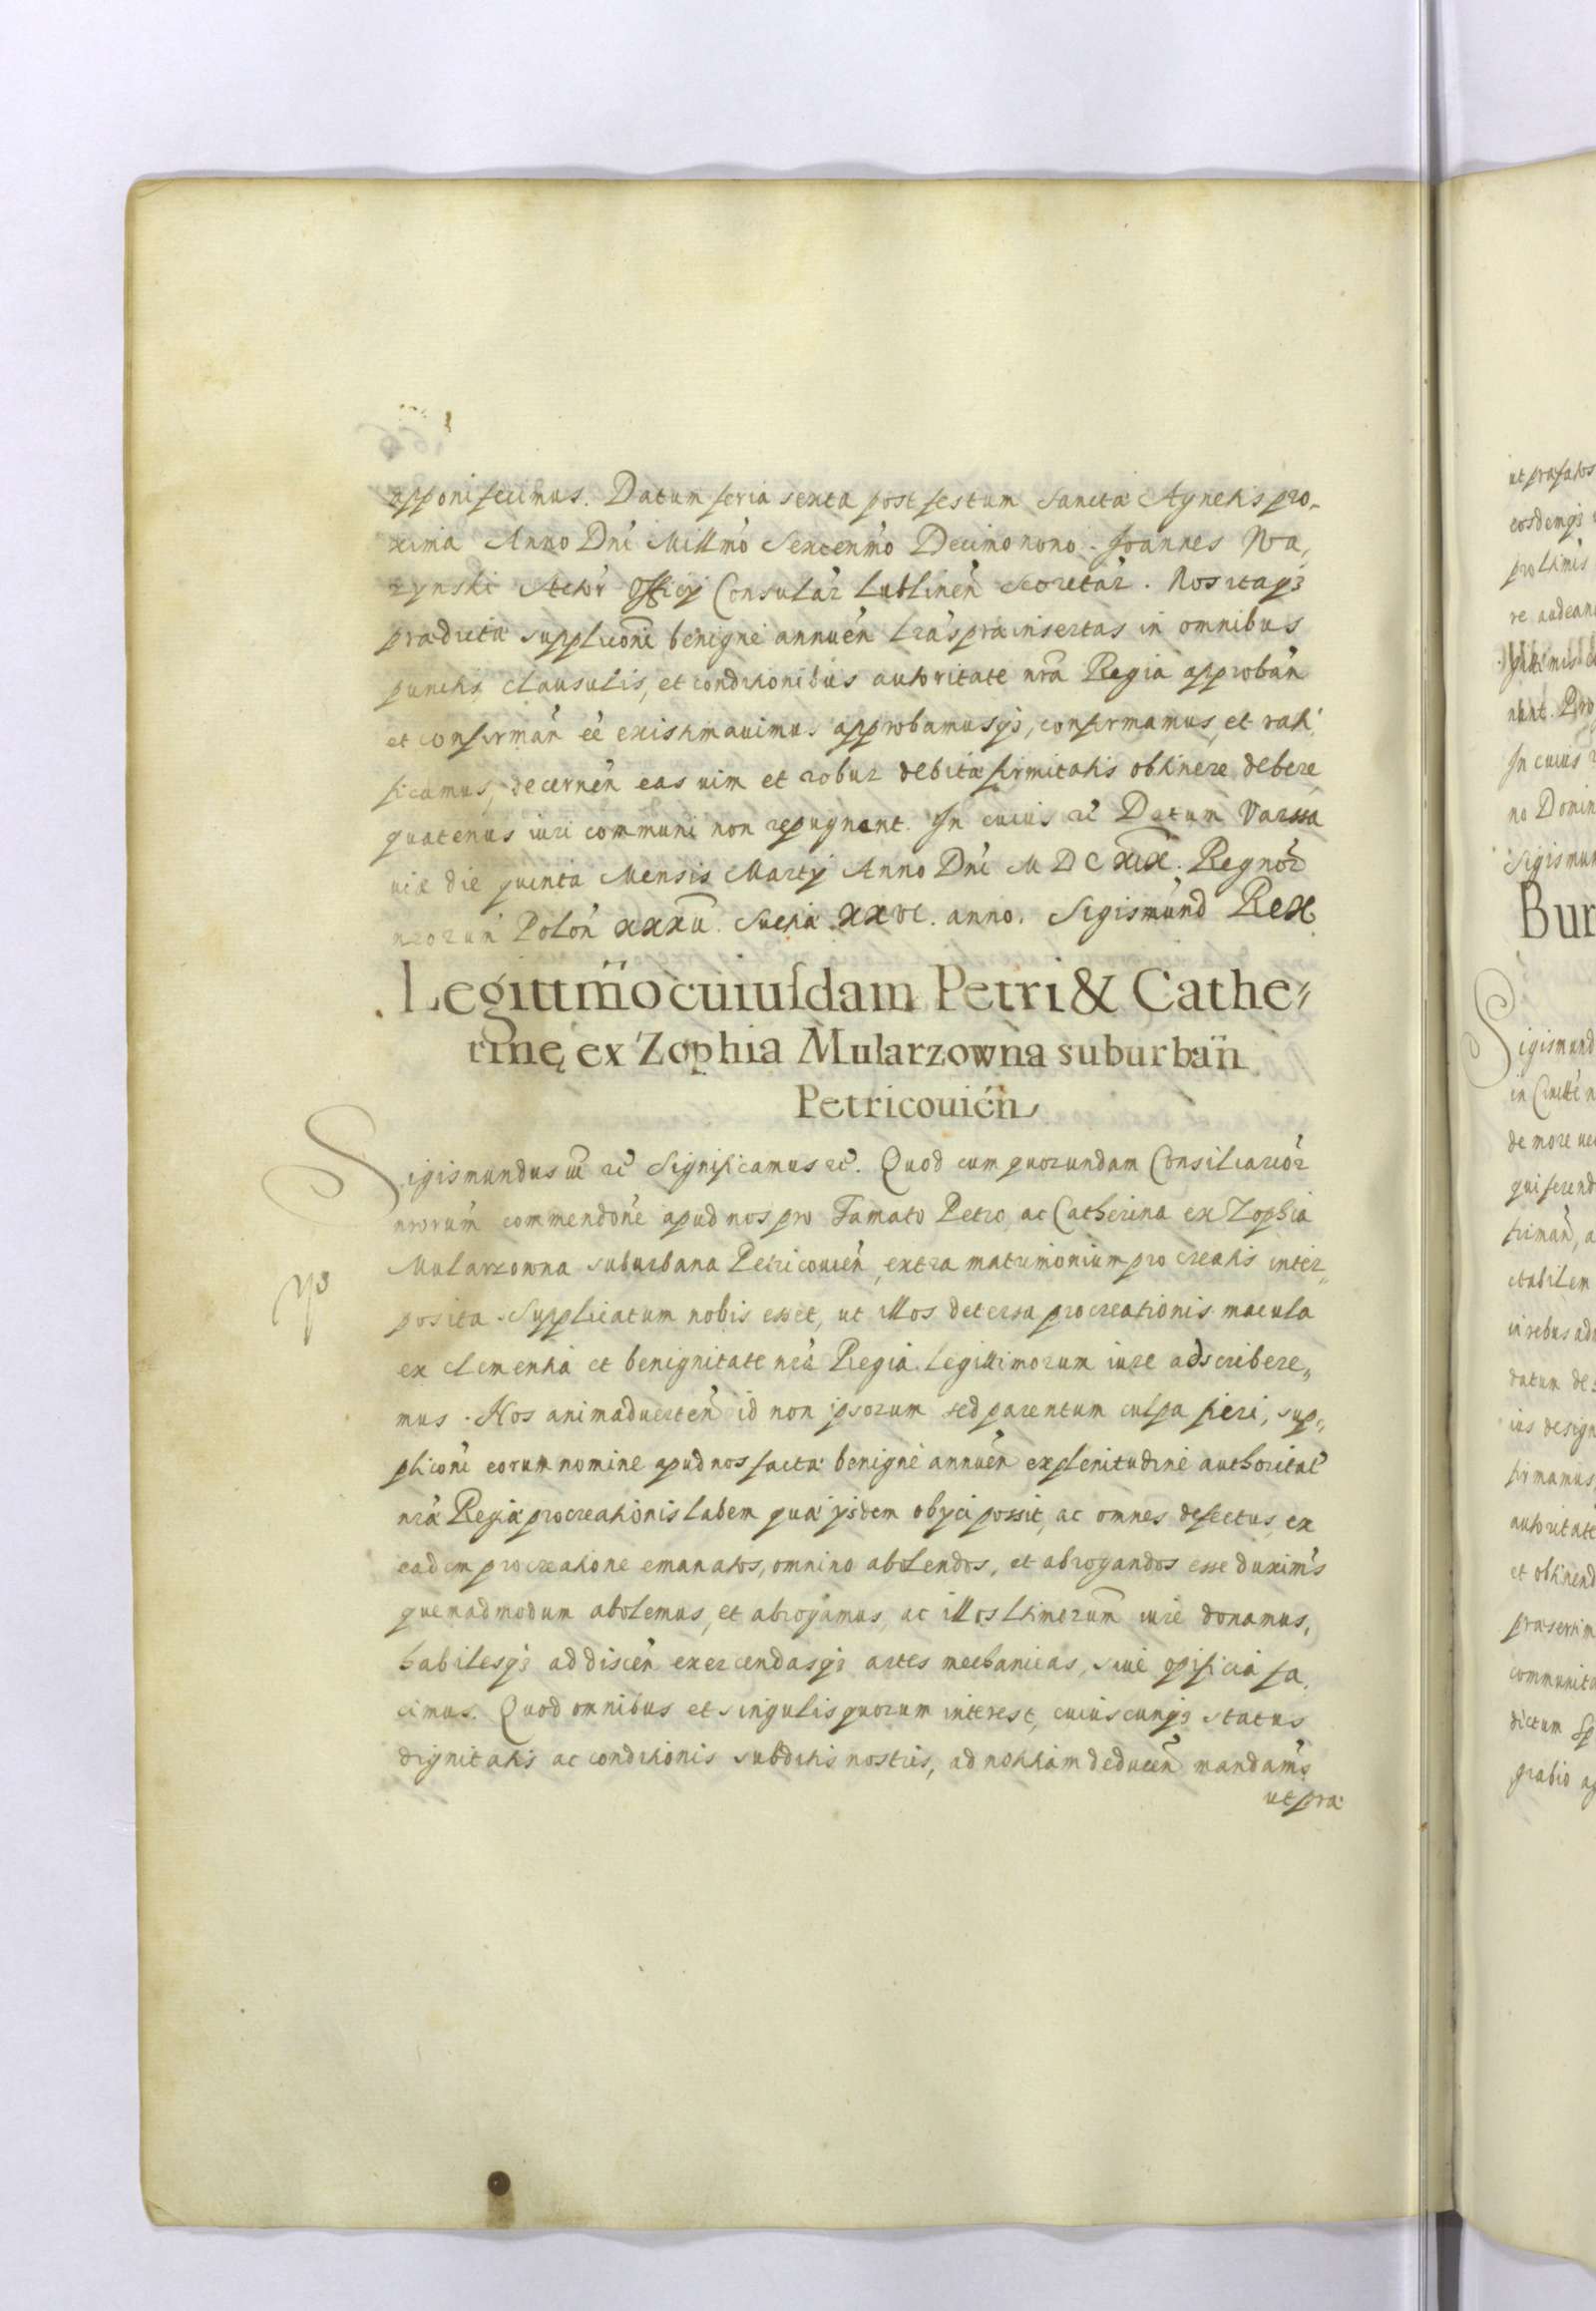 apponi fecimus. Datum feria sexta post festum Sanctæ Agnetis pro-
xima Anno Dni Millmo Sexcenmo Decimo nono. Joannes Wa,
zynski Actor Officij Consular Lublinen Secretar. Nos itaqз
prædictæ supplicõni benigne annuen lrãs præinsertas in omnibus
punctis clausulis, et conditionibus autoritate nrã Regia approban
et confirman eẽ existimauimus approbamusqз, confirmamus, et rati,
ficamus, decernen eas uim et robur debitæ firmitatis obtinere debere
quatenus iuri communi non repugnant. In cuius rẽ Datum Varssa
uiæ die quinta Mensis Martij Anno Dni M D C XIX. Regnor
nrorum Polon XXXII. Sueciæ XXVI. anno. Sigismund Rex
Legittmo cuiusdam Petri & Cathe⸗
rinę ex Zophia Mularzowna suburban
Petricouien
Sigismundus iii rẽ Significamus rẽ. Quod cum quorundam Consiliarior
nrorum commendone apud nos pro Famato Petro, ac Catherina ex Zophia
Mularzowna suburbana Petricouien, extra matrimonium procreatis inter„
posita. Supplicatum nobis esset, ut illos detersa procreationis macula
ex clementia et benignitate nrã Regia legittimorum iure adscribere„
mus. Nos animaduerten id non ipsorum sed parentum culpa fieri, sup„
pliconi eorum nomine apud nos factæ benigne annuen ex plenitudine authoritat
nræ Regiæ procreationis labem quæ ijsdem obijci possit, ac omnes defectus ex
eadem procreatione emanatos, omnino abolendos, et abrogandos esse duxims
quemadmodum abolemus, et abrogamus, ac illos ltimorum iure donamus,
habilesqз ad discen exercendasqз artes mechanicas, siue opificia fa,
cimus. Quod omnibus et singulis quorum interest, cuiuscunqз status
dignitatis ac conditionis subditis nostris, ad notitiam deducen mandams
ut præ
ut præfatos
eosdemqз
pro ltimis
re audean
nunt. Pro
In cuius r
no Domin
Sigismun
Bur
Sigismund
in Ciuitte n
de more ue
qui ferend
timan, a
ctabilem
in rebus ad
datum de
ius design
firmamus,
autoritate
et obtinend
præsertim
communita
dictum Sp
gratio a